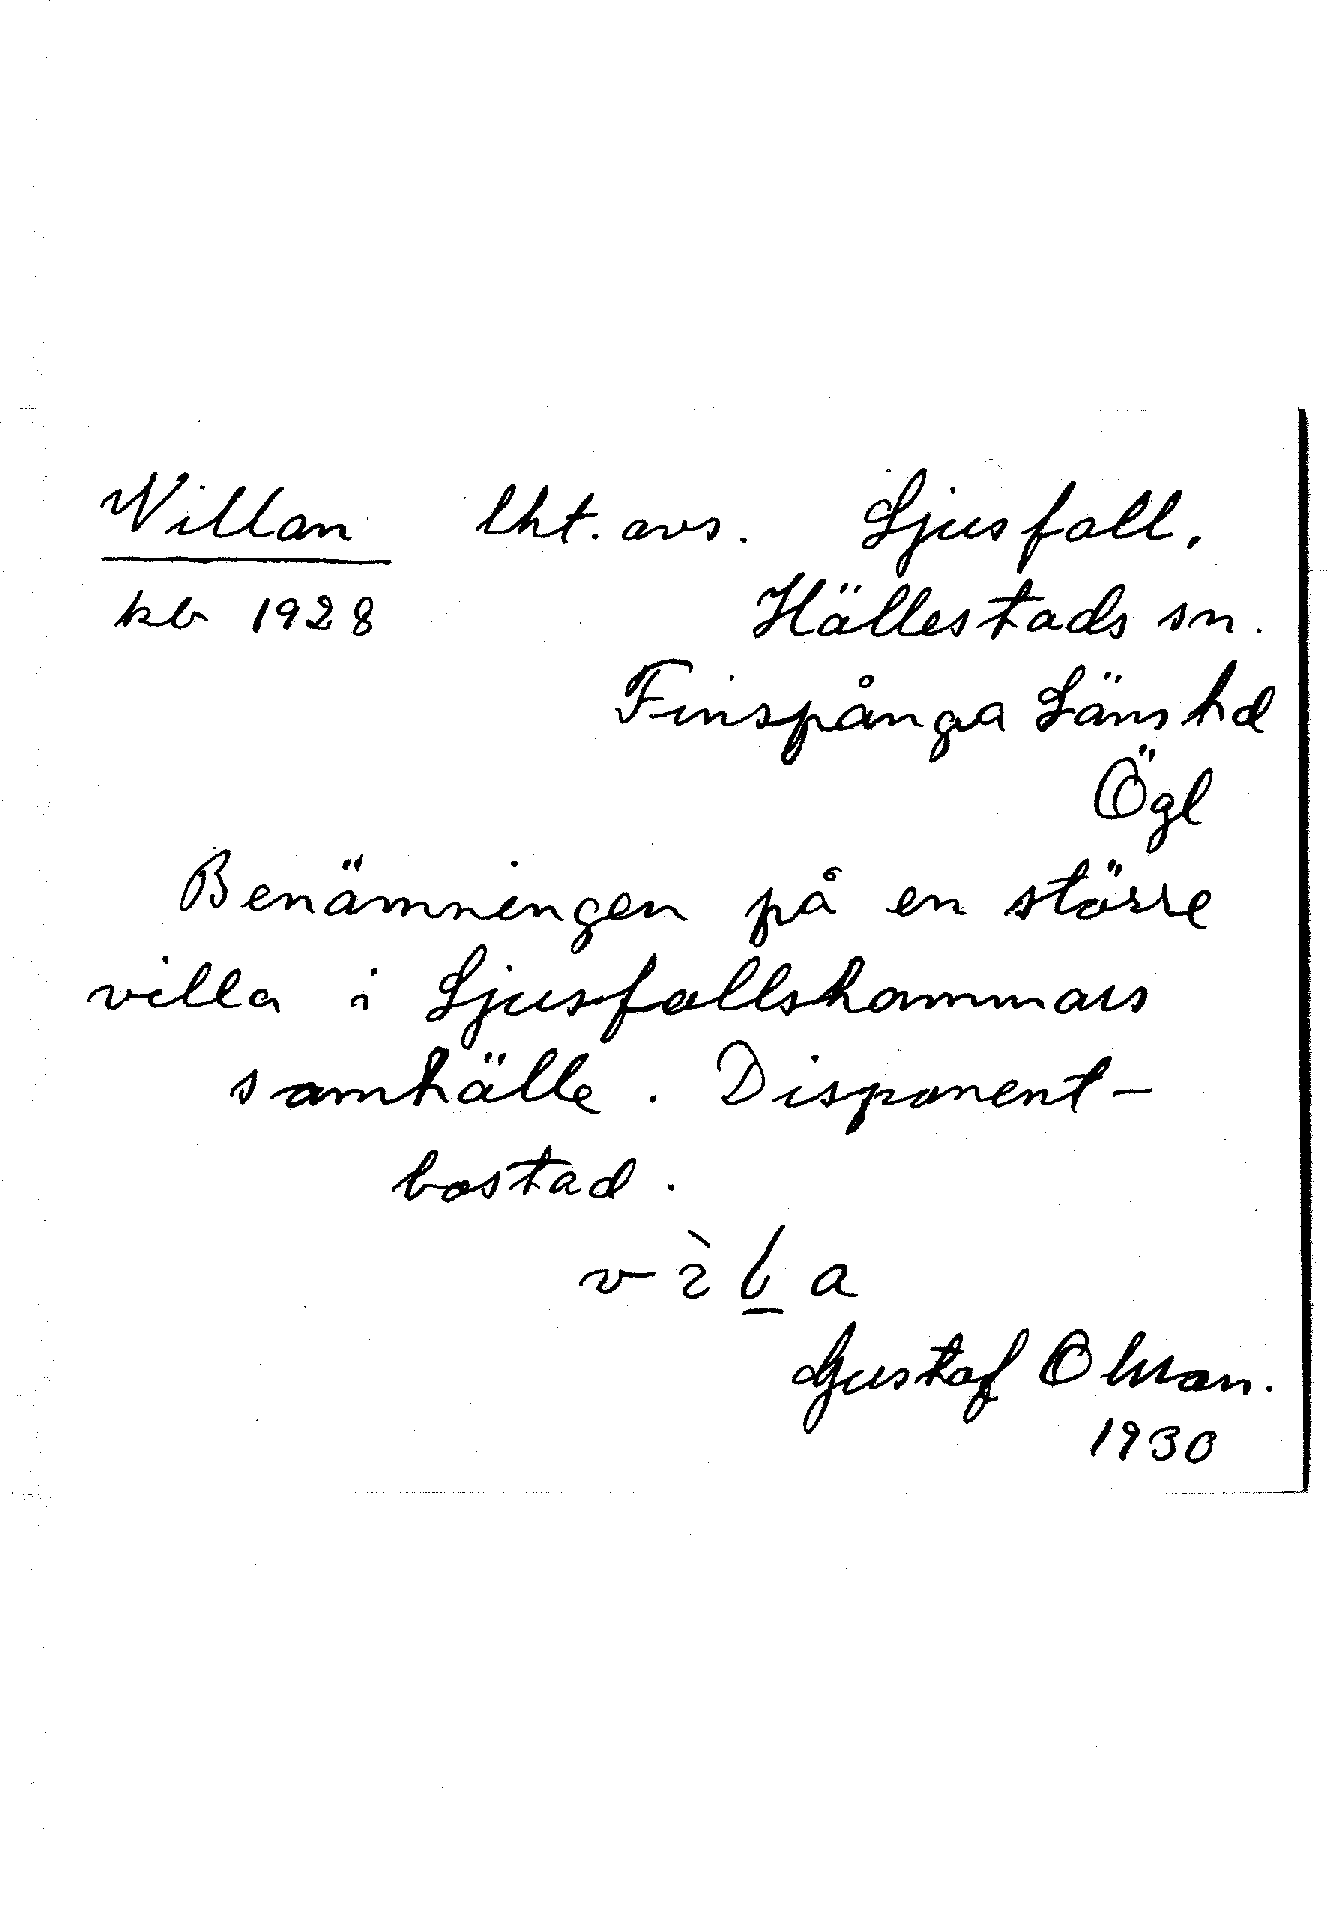 Willan lht. avs. Ljusfall,
kb 1928 Hällestads sn.
Finspånga Länshd
Ögl
Benämningen på en större
villa i Ljusfallshammars
samhälle. Disponent-
bostad.
Gustaf Olsson.
1930